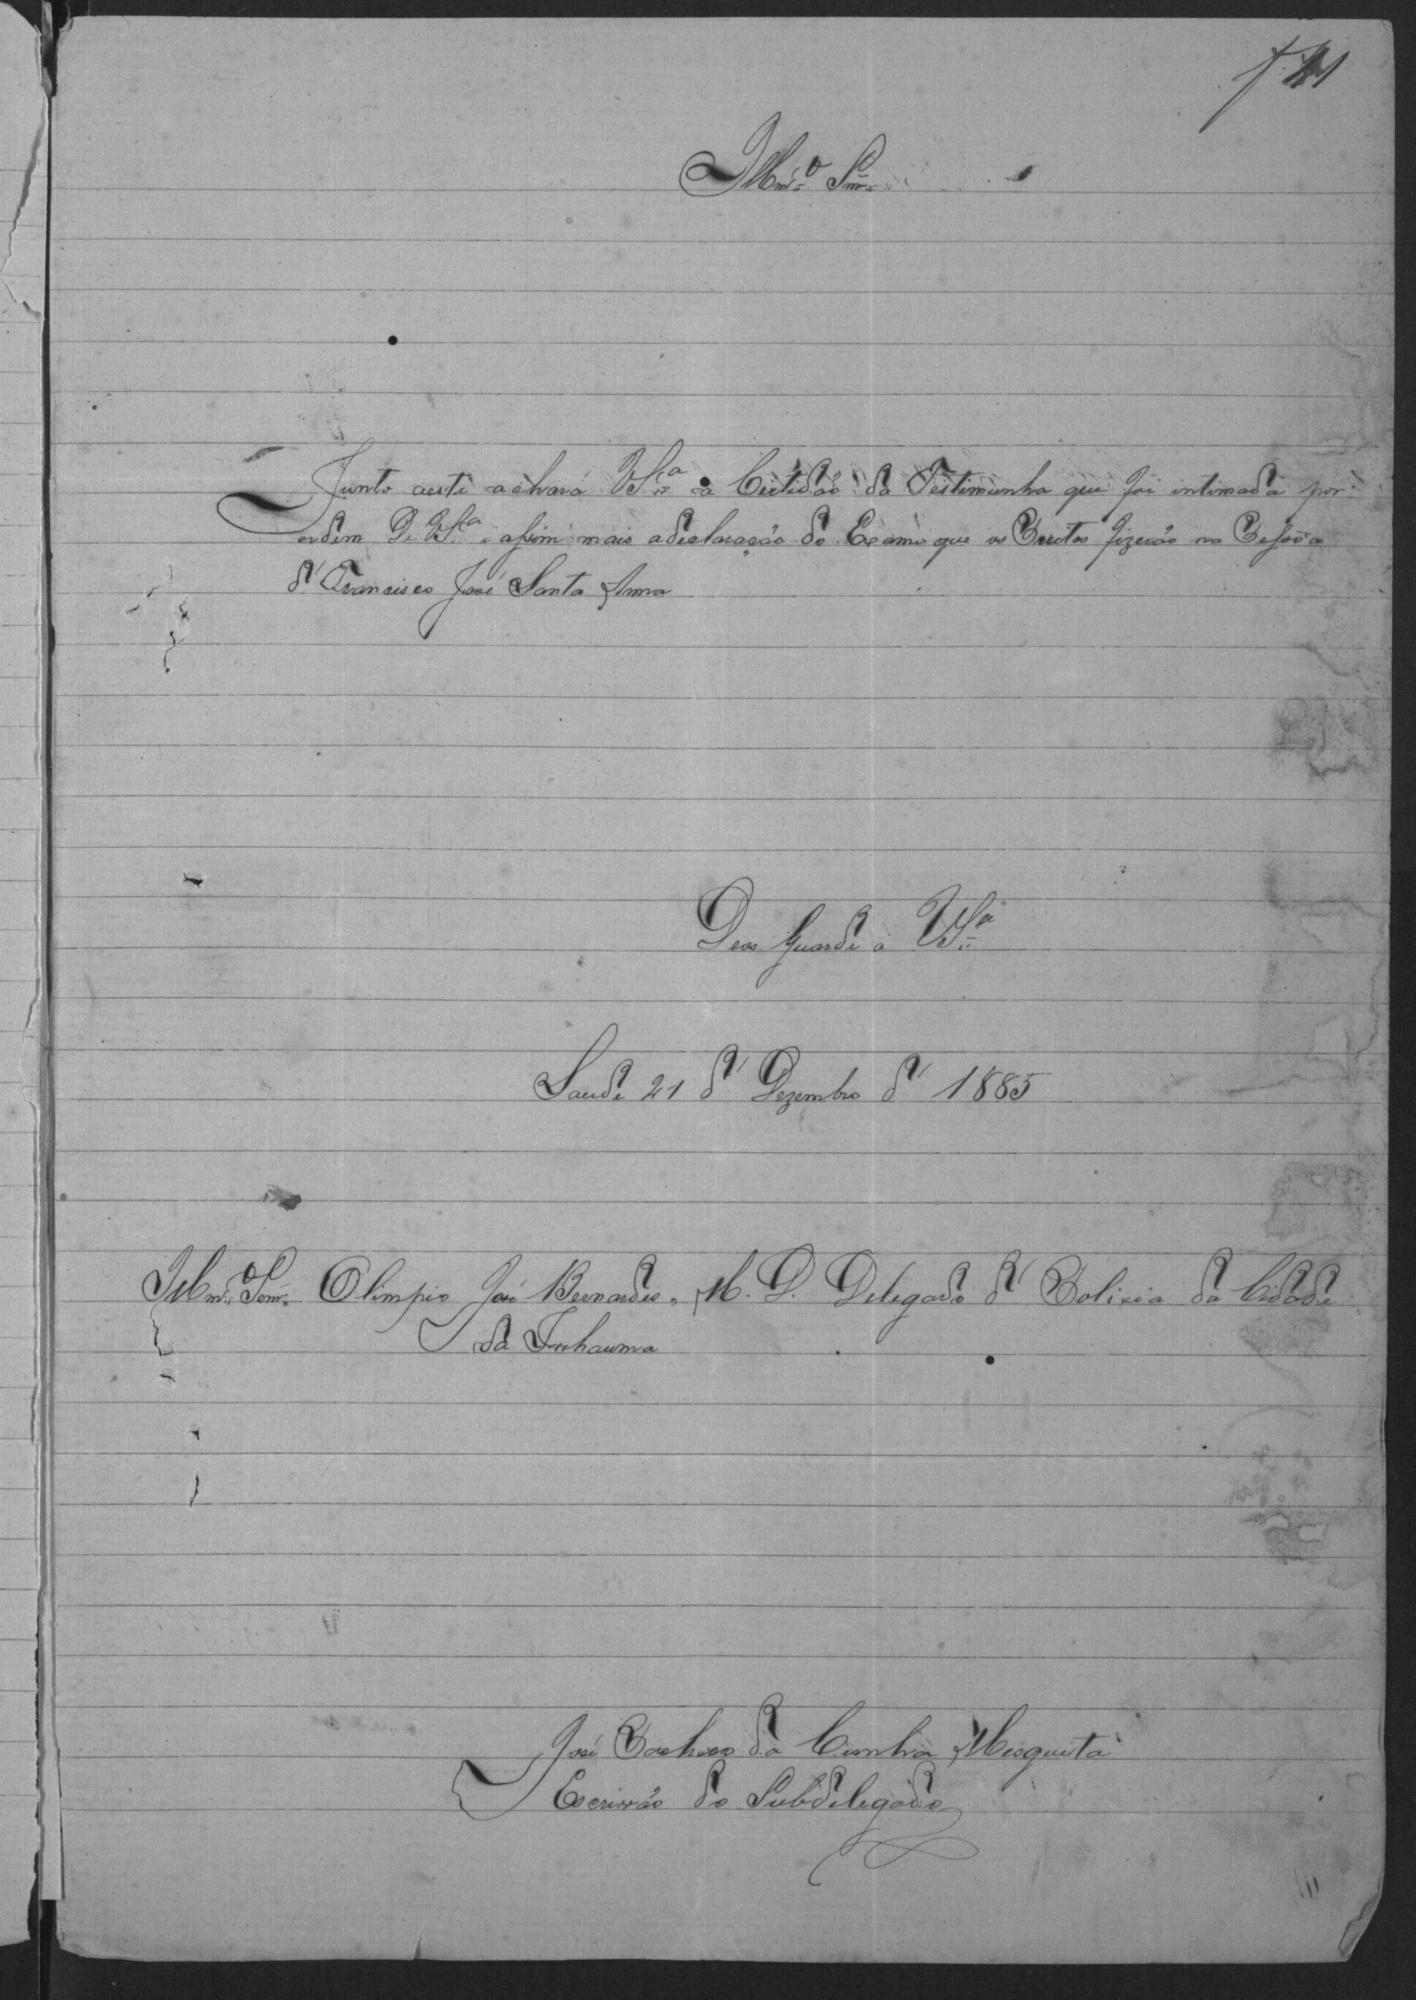 f 11
Illm.o Snr.
Junto aesti achará V S.a a Certidão da Testimunha que foi intimada por
ordem De V S.a i assim mais adeclaração do Exame que os Peritos fizerão na Pessoa
d' Francisco José Santa Anna
Deos Guarde a V S.a
Saude 21 d' Dezembro d' 1885
Illm.o Snr. Olimpio José Bernardes, M. D. Delegado d' Policia da Cidade
da Inhauma
José Pacheco da Cunha Mesquita
Escrivão do Subdelegado